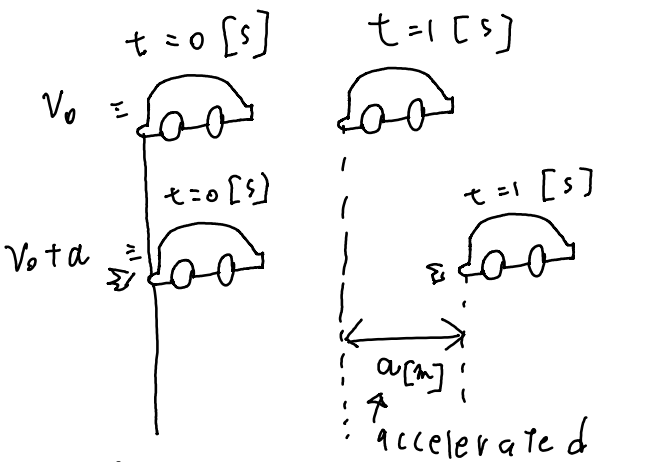 t=0 [s]
t=1 [s]
V₀
t=0 [s]
t=1 [s]
V₀+a
a[m]
accelerated